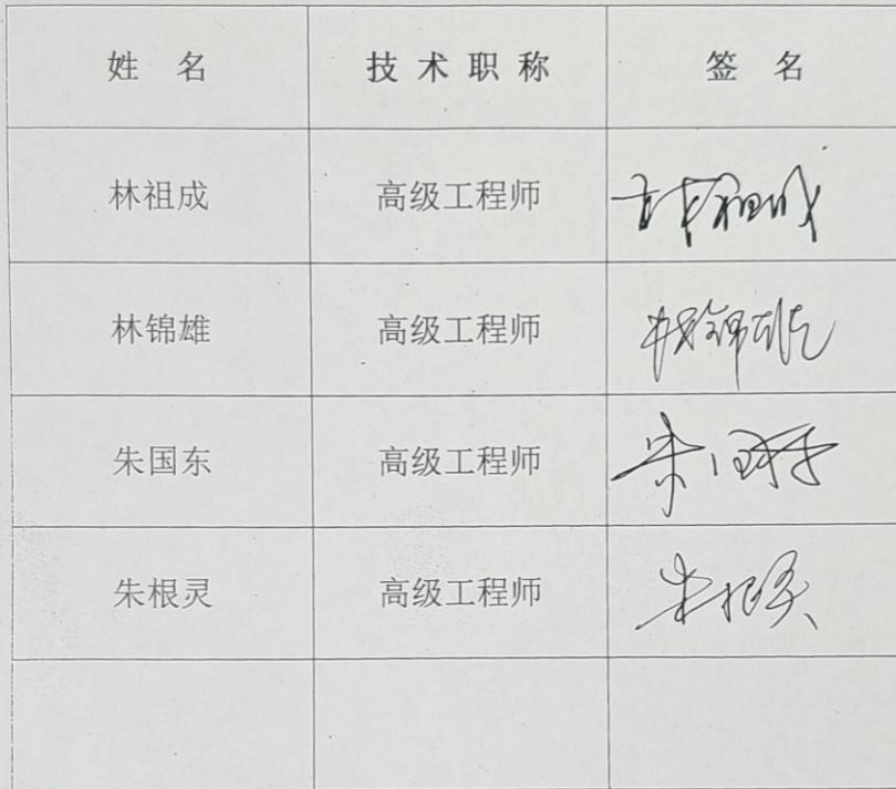 姓 名 技 术 职 称 签 名
林祖成 高级工程师 林祖成
林锦雄 高级工程师 林锦雄
朱国东 高级工程师 朱国东
朱根灵 高级工程师 朱根灵